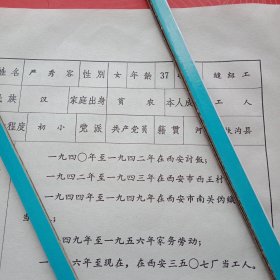 姓名 严秀容 性别 女 年龄 37 缝纫工
民族 汉 家庭出身 贫农 本人成 工人
程度 初小 党派 共产党员 籍贯 河 扶沟县
一九四〇年至一九四二年在西安讨饭；
一九四二年至一九四三年在西安市西王村
一九四四年至一九四九年在西安市南关伪
当
四九年至一九五六年家务劳动；
六年至现在，在西安三五〇七厂当工人。